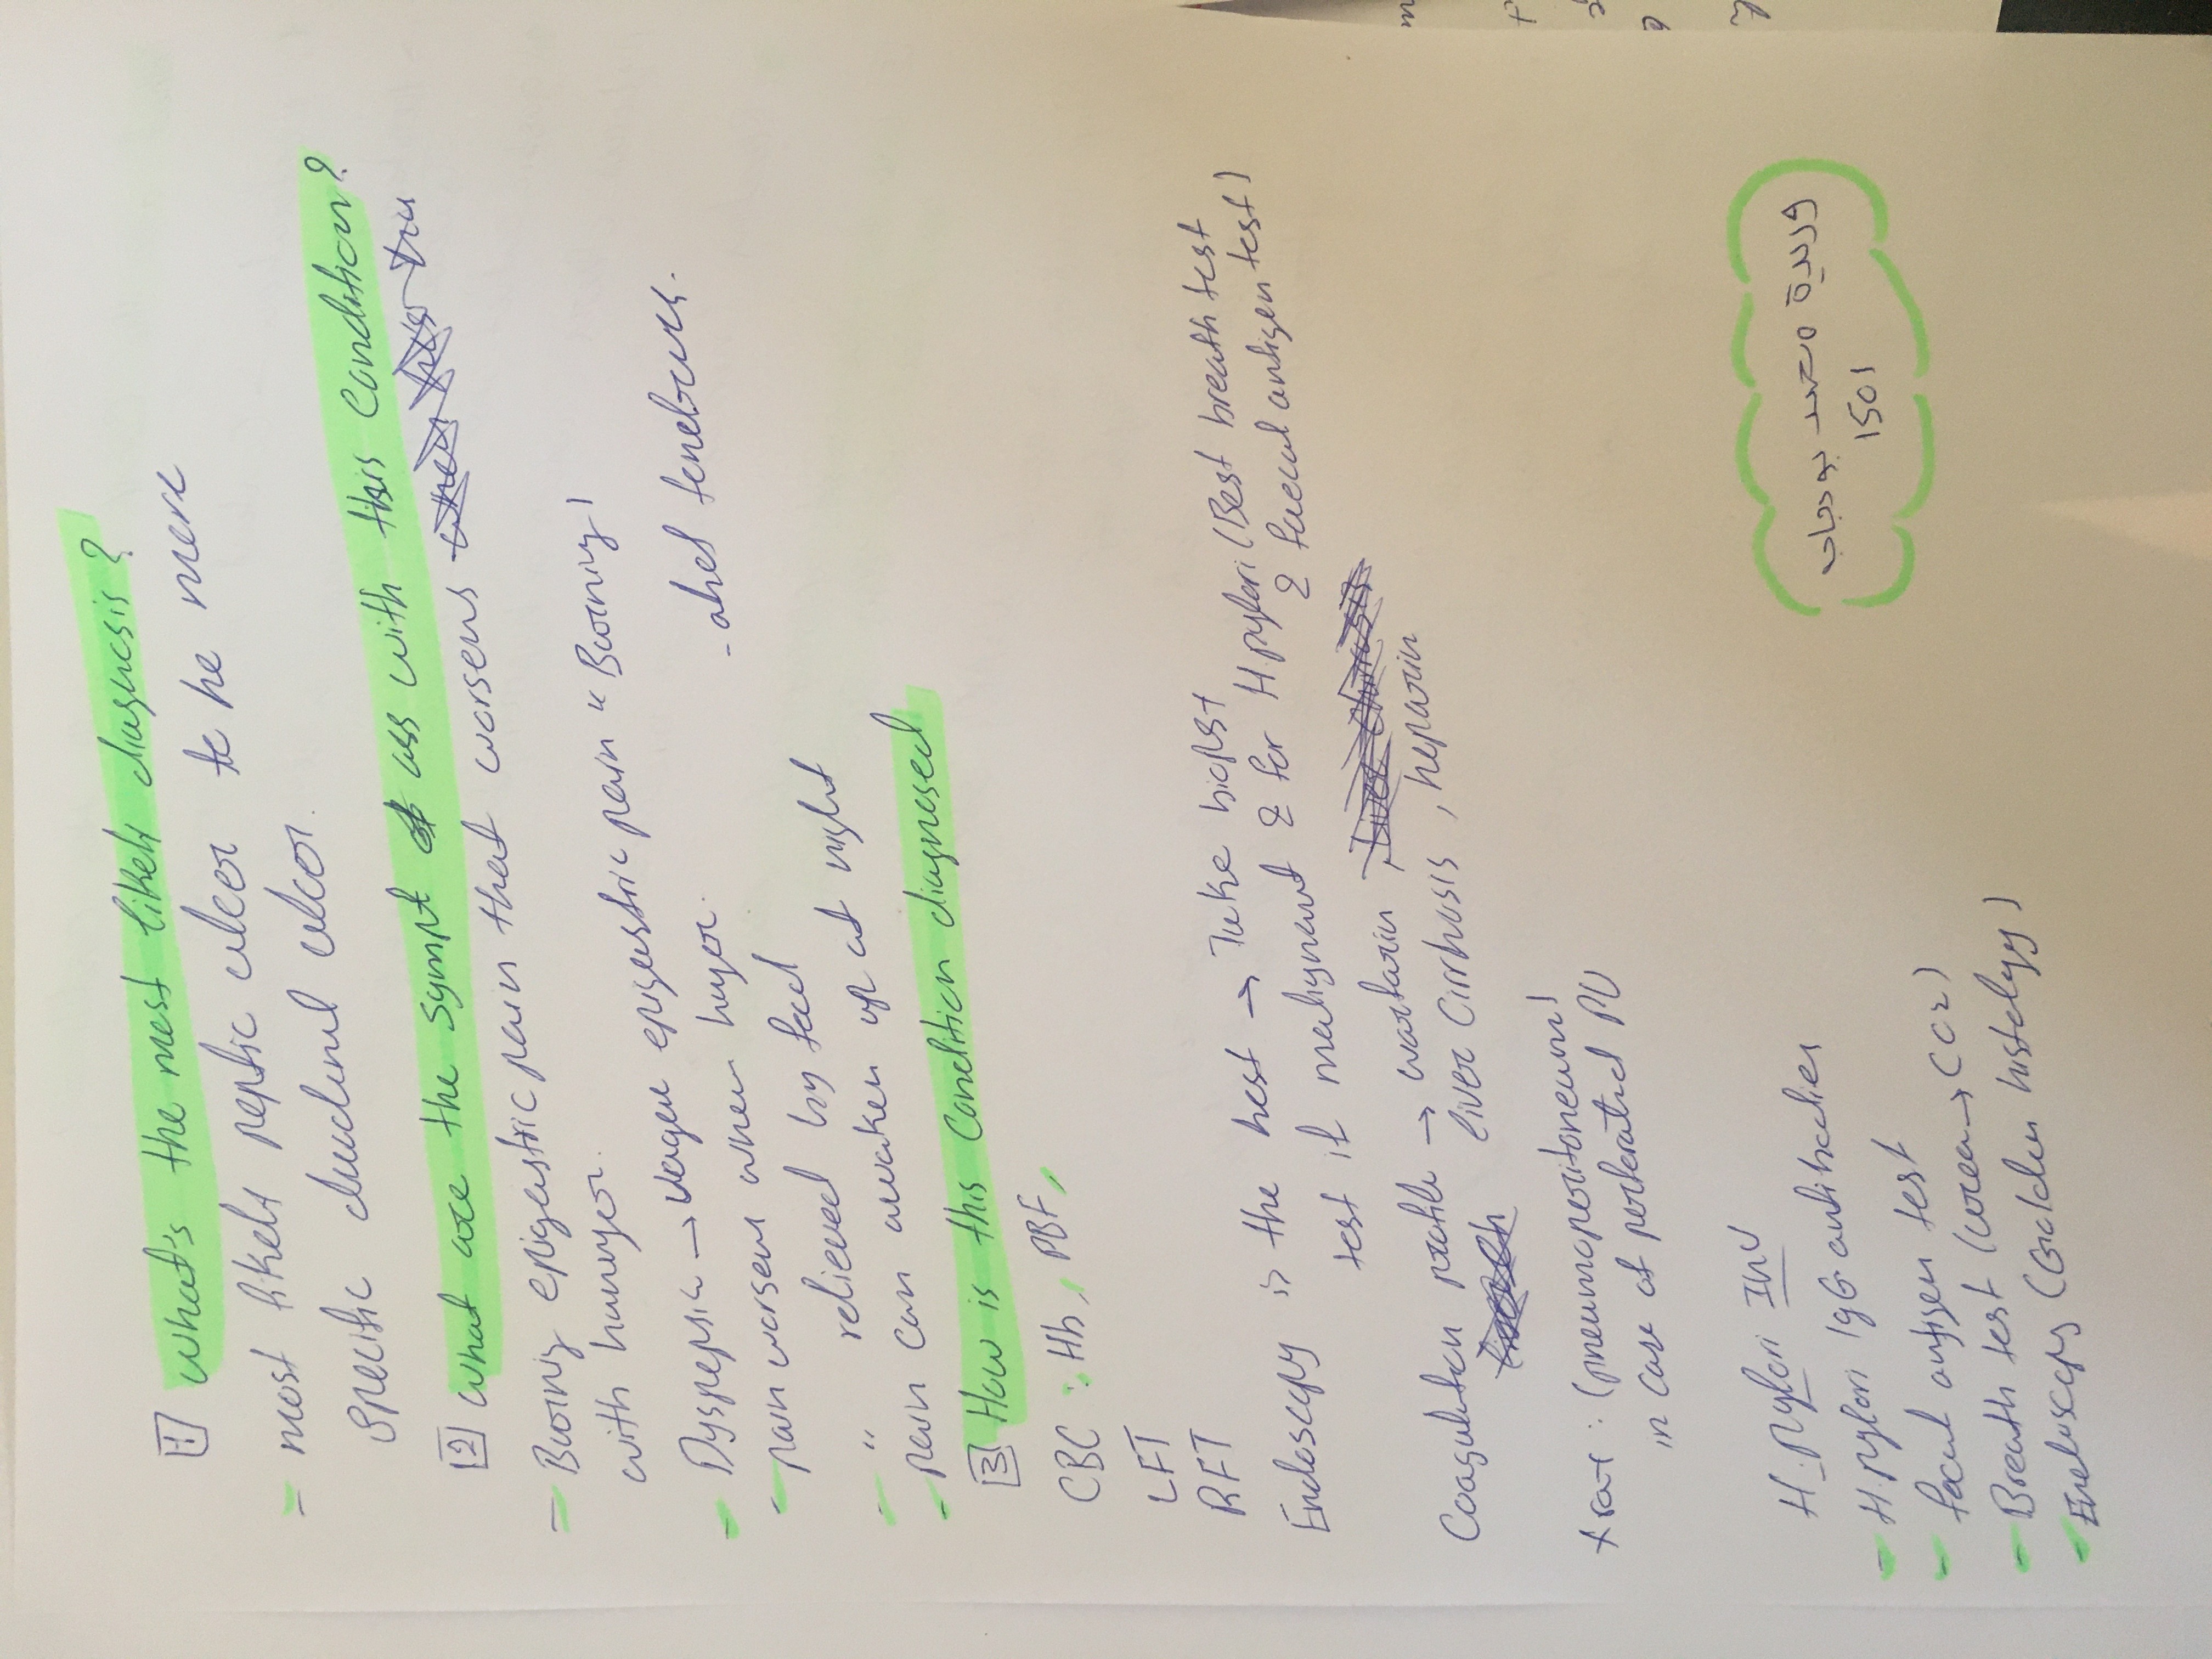 1 what's the most likely diagnosis?
- most likely peptic ulcer to be more
specific duodenal ulcer.
2 what are the sympt ass with this Condition?
- Boring epigastric pain that worsens
with hunger.
- Dyspepsia → vague epigastric pain "Boring!
- pain worsen when hunger.
- ahel tenebucs.
" relieved by food
- pain can awaken up at night
3 How is this Condition diagnosed
CBC: Hb, PBF,
LFT
RFT
Endoscopy is the best → Take biopst
test if malignant & for H.pylori (Best breath test
& faecal antigen test)
Coagulation profile → warfarin
liver Cirrhosis, heparin
xray: (pneumoperitoneum!
in case of perforated PU
H.Pylori INV
- H.pylori IgG antibodies
- fecal antigen test
- Breath test (urea → CO2)
- Endoscopy (Golden histology)
وريدة محمد بودجاب
1501